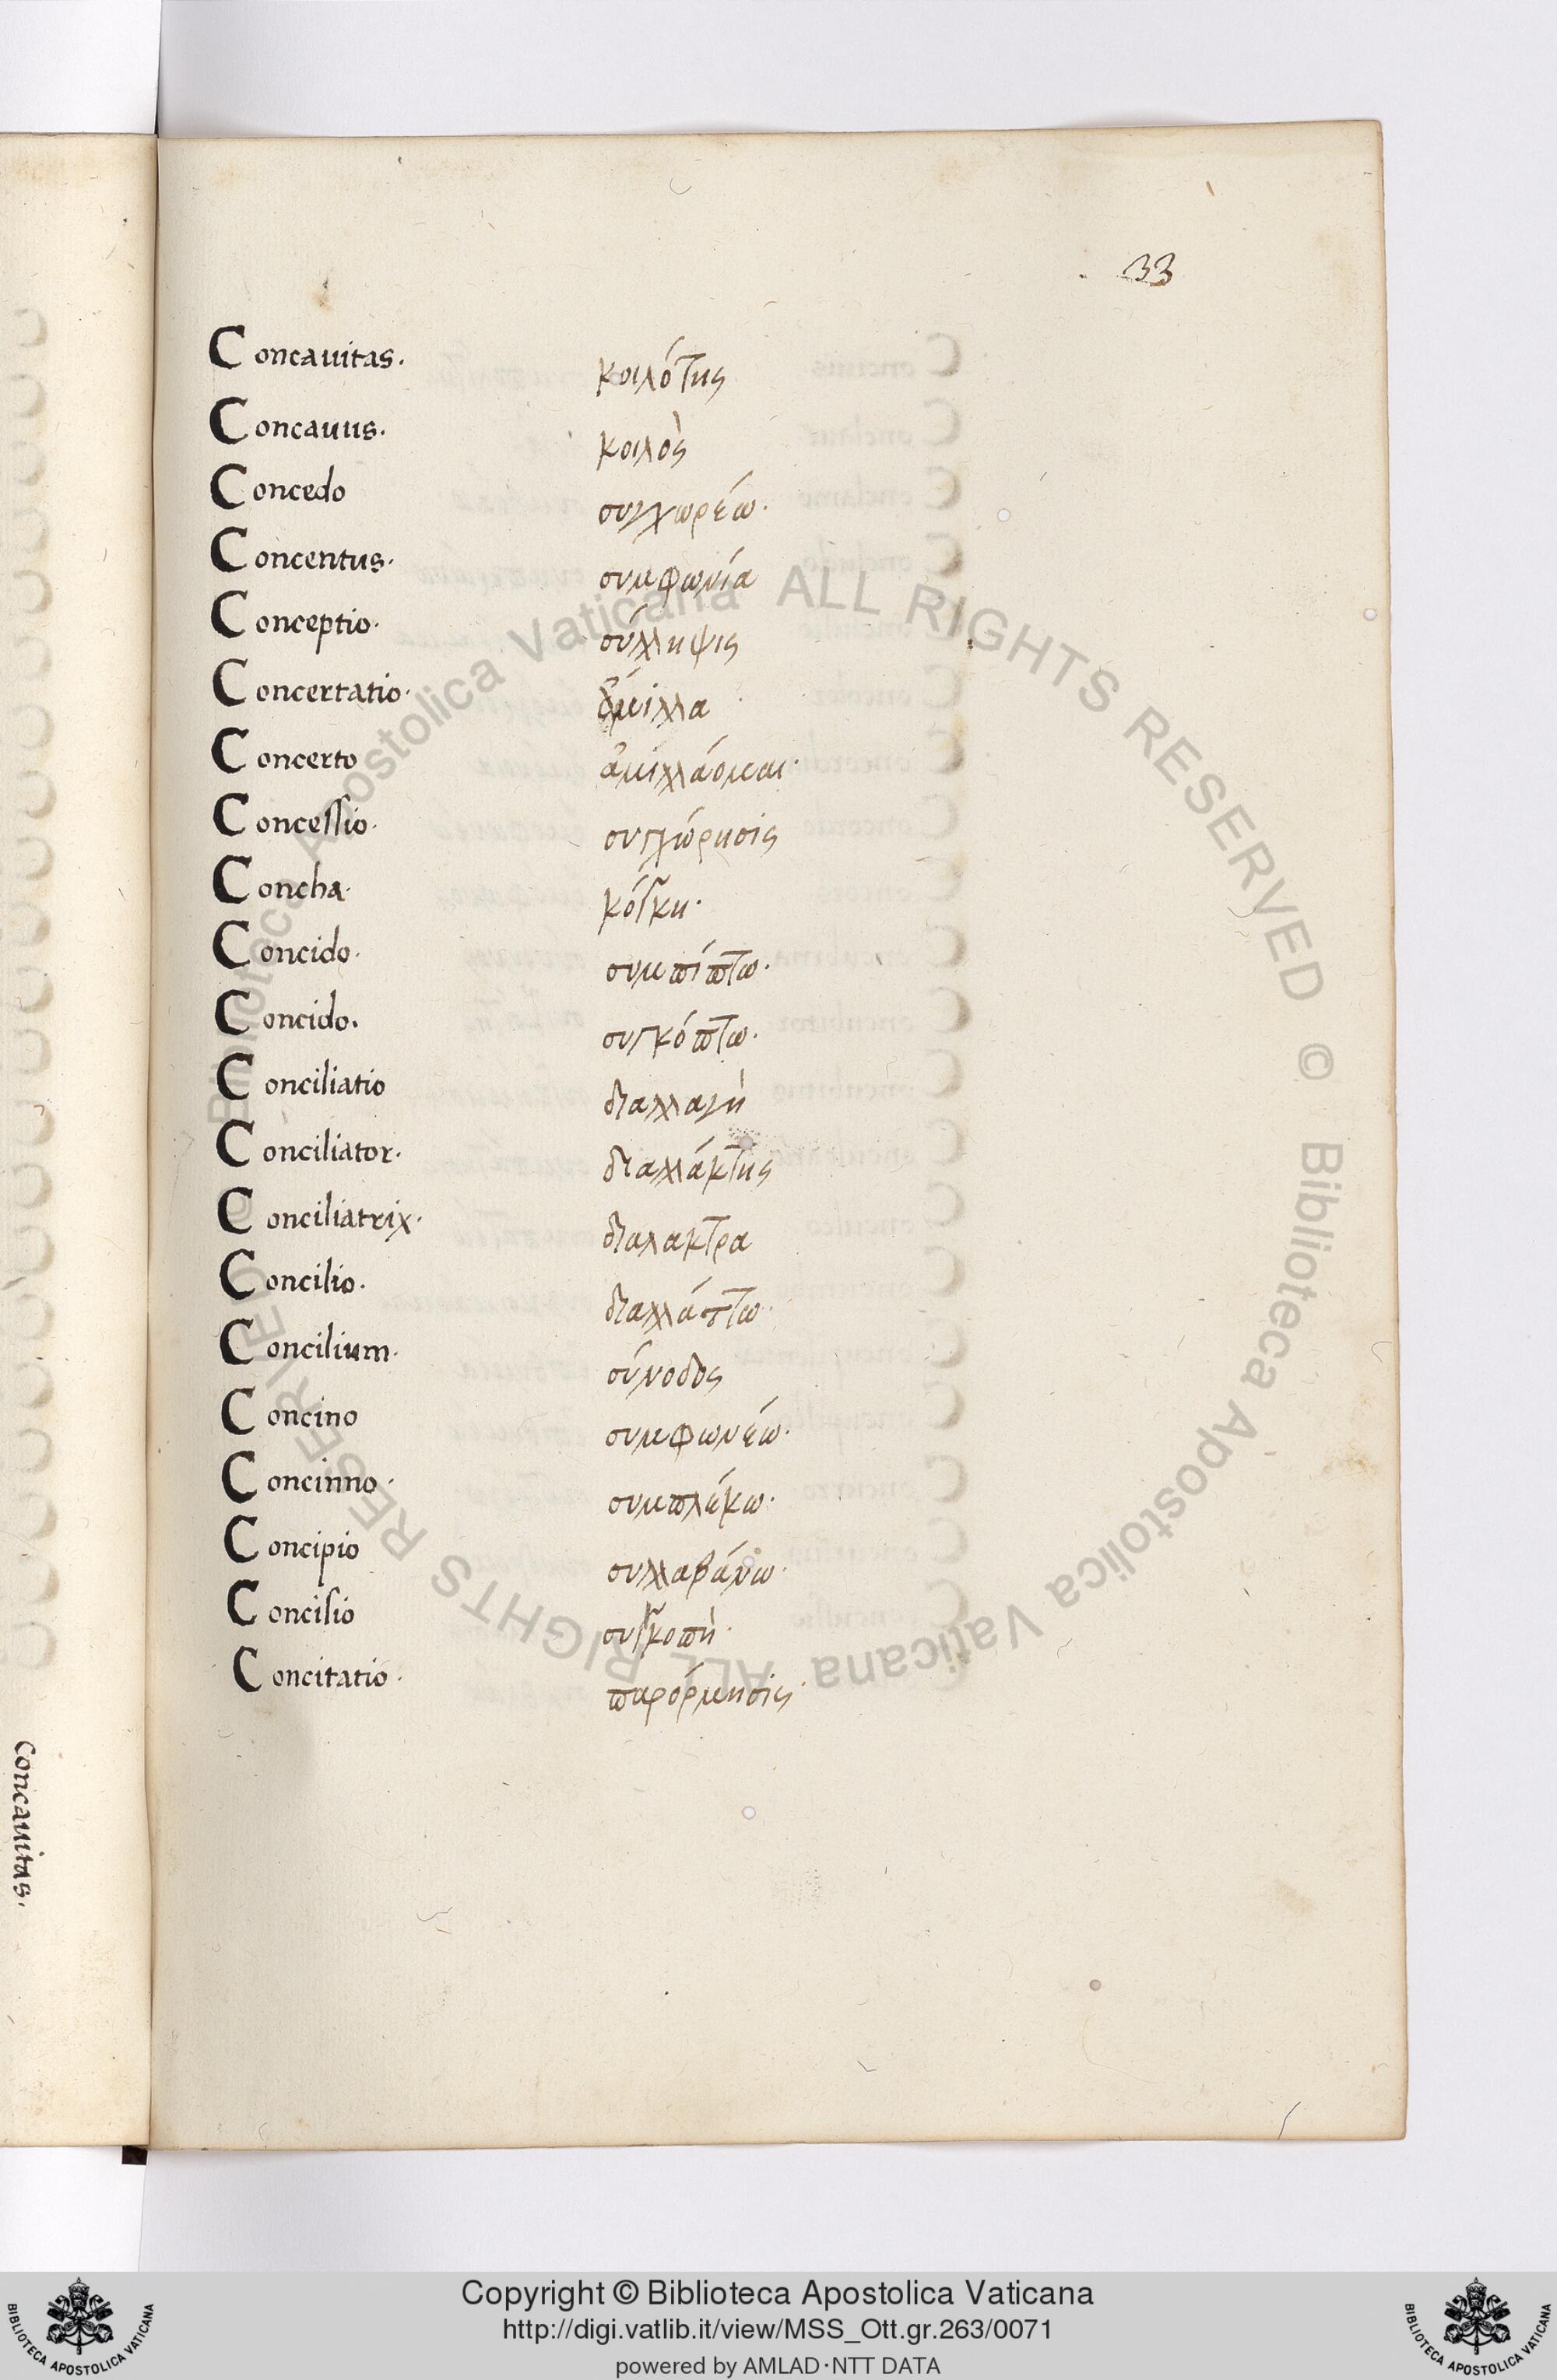 33
Concauitas. κοιλότης
Concauus. κοιλὸς
Concedo συγχωρέω.
Concentus. συμφωνία
Conceptio. σύλληψις
Concertatio. ἅμιλλα
Concerto ἁμιλλάομαι.
Concessio. συγχώρησις
Concha. κόγκη.
Concido. συμπίπτω.
Concido. συγκόπτω.
Conciliatio διαλλαγὴ
Conciliator. διαλλάκτης
Conciliatrix. διαλακτρα
Concilio. διαλλάττω.
Concilium. σύνοδος
Concino συμφωνέω.
Concinno. συμπλέκω.
Concipio συλλαβάνω.
Concisio συγκοπὴ.
Concitatio. παρόρμησις.
Concauitas.
Biblioteca Apostolica Vaticana ALL RIGHTS RESERVED © Biblioteca Apostolica Vaticana ALL RIGHTS RESERVED ©
Copyright © Biblioteca Apostolica Vaticana
http://digi.vatlib.it/view/MSS_Ott.gr.263/0071
powered by AMLAD·NTT DATA
BIBLIOTECA APOSTOLICA VATICANA
BIBLIOTECA APOSTOLICA VATICANA